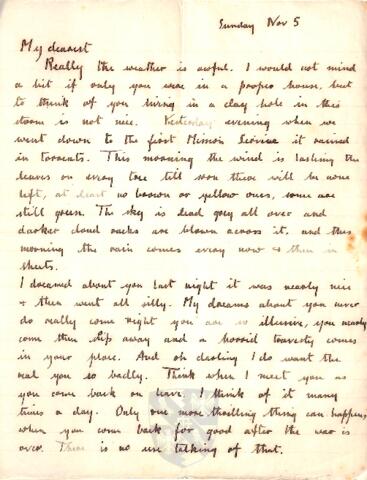 Sunday Nov 5
My dearest
Really the weather is awful. I would not mind
a bit if only you were in a proper house, but
to think of you living in a clay hole in this
storm is not nice. Yesterday evening when we
went down to the first Mission Service it rained
in torrents. This morning the wind is lashing the
leaves on every tree till soon there will be none
left, at least no brown or yellow ones, some are
still green. The sky is dead grey all over and
darker cloud racks are blown across it, and this
morning the rain comes every now & then in
sheets.
I dreamed about you last night it was nearly nice
& then went all silly. My dreams about you never
do really come right you are so illusive, you nearly
come then slip away and a horrid travesty comes
in your place. And oh darling I do want the
real you so badly. Think when I meet you as
you come back on leave. I think of it many
times a day. Only one more thrilling thing can happen,
when you come back for good after the war is
over. There is no use talking of that.